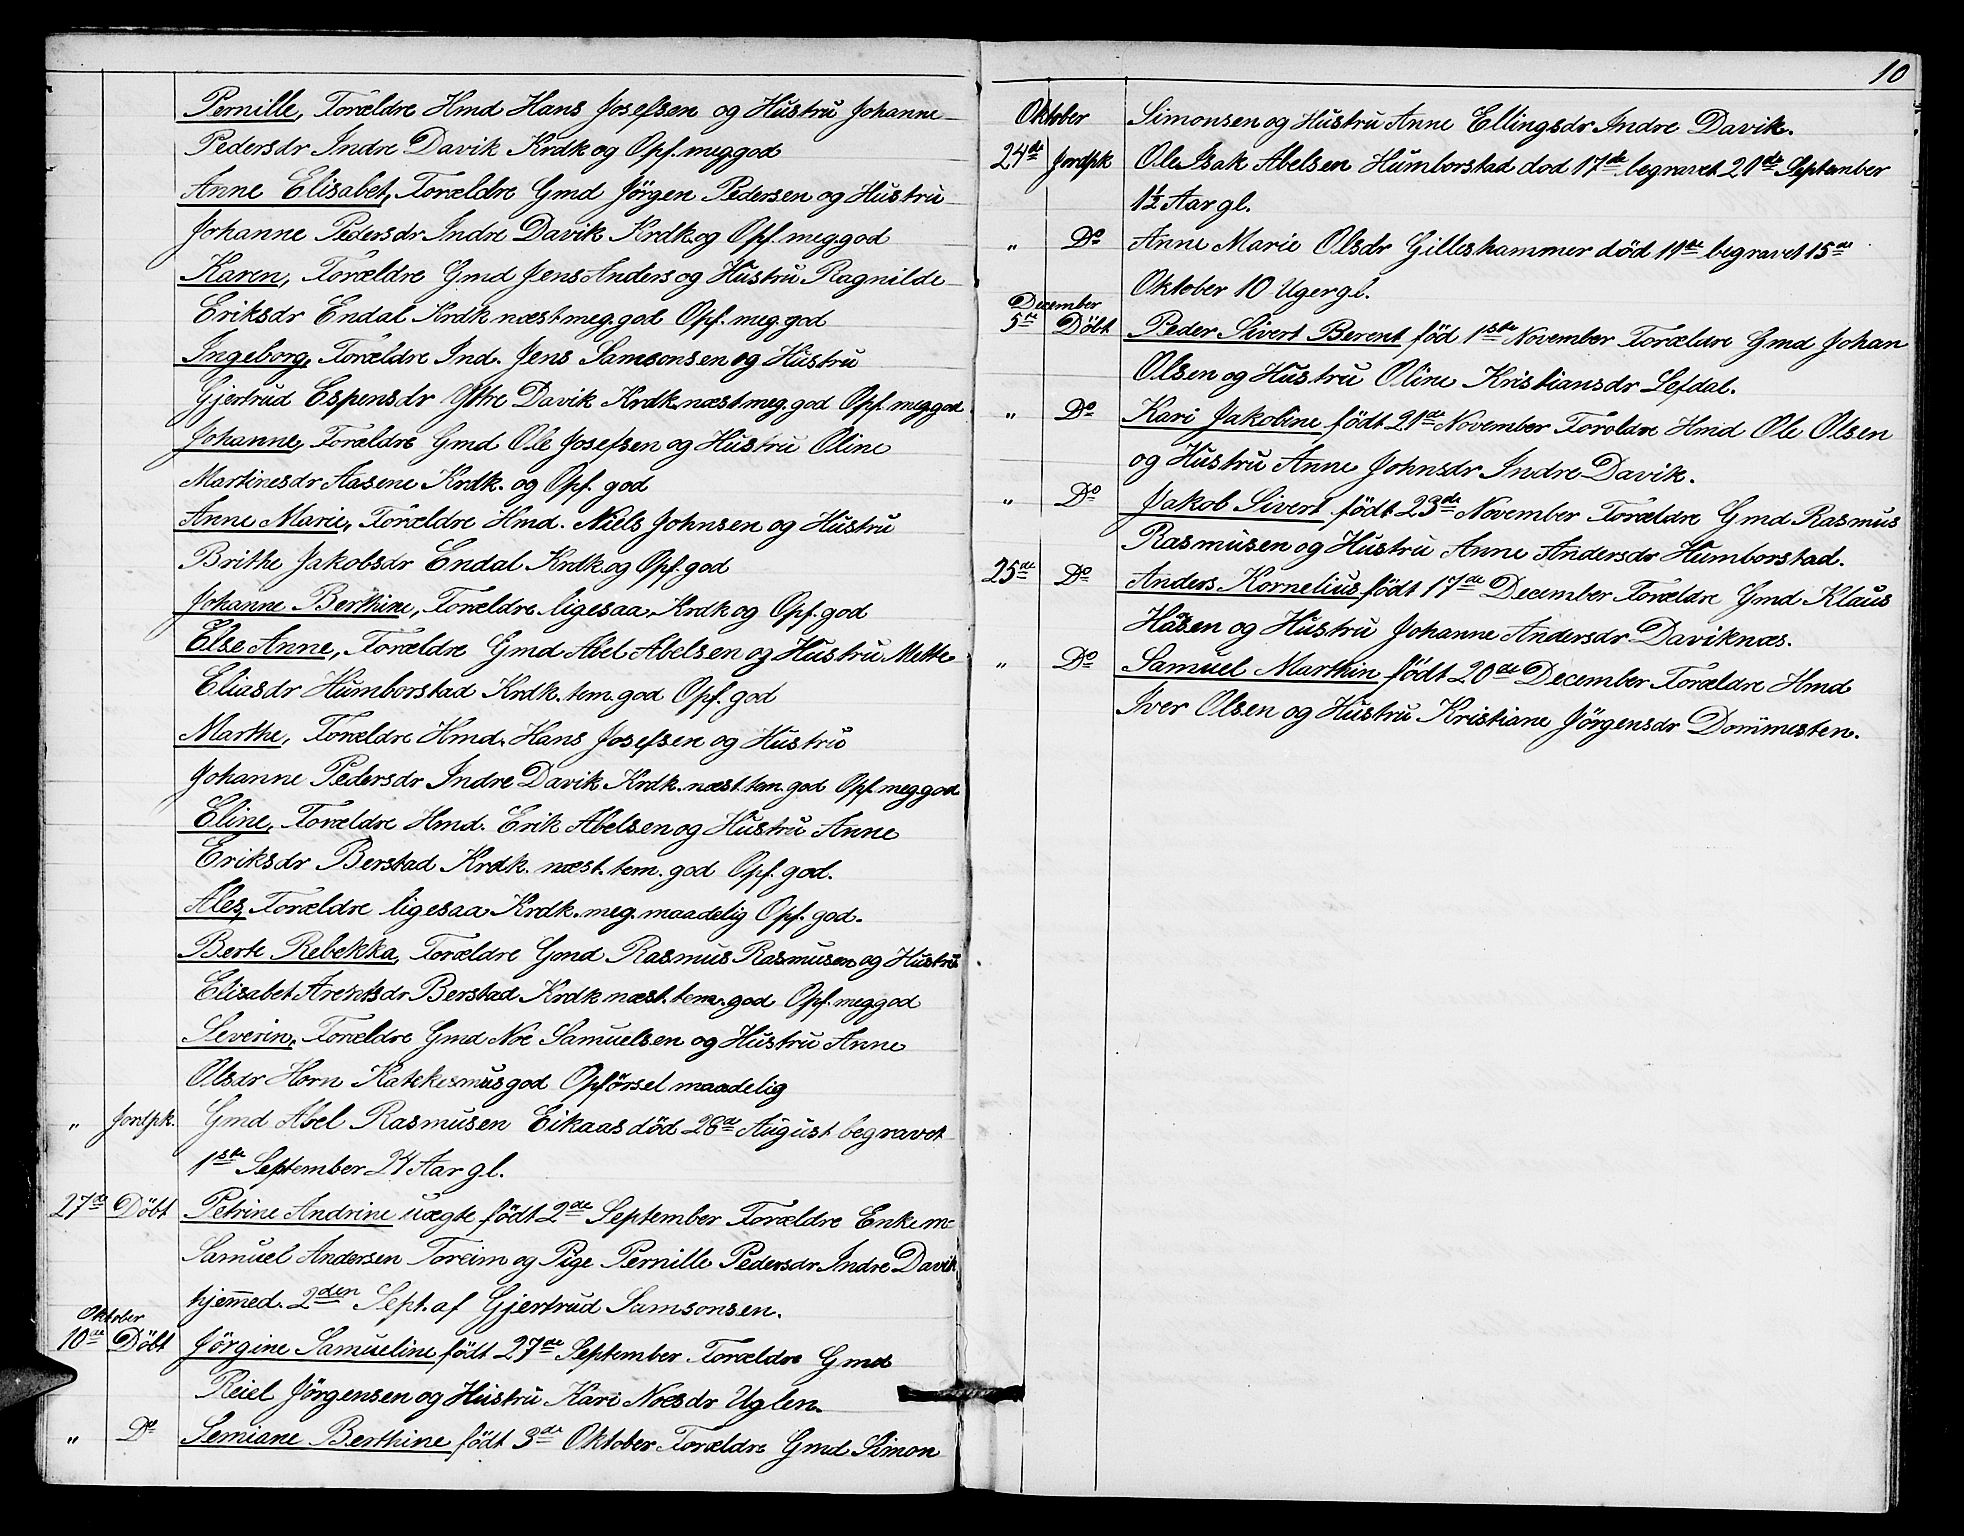 Pernille, Forældre Hmd Hans Josefsen og Hustru Johanne
Pedersdr Indre Davik Krdk og Opf. meg.god
Anne Elisabet, Forældre Gmd Jörgen Pedersen og Hustru
Johanne Pedersdr Indre Davik Krdk. og Opf. meg.god
Karen, Forældre Gmd Jens Anders og Hustru Ragnilde
Eriksdr Endal Krdk næst meg. god Opf. meg. god
Ingeborg, Forældre Ind. Jens Samsonsen og Hustru
Gjertrud Espensdr Ytre Davik Krdk. næst meg. god Opf. meg god
Johanne, Forældre Gmd Ole Josefsen og Hustru Oline
Martinesdr Aasene Krdk. og Opf. god
Anne Marie, Forældre Hmd. Niels Johnsen og Hustru
Brithe Jakobsdr Endal Krdk og Opf. god
Johanne Berthine, Forældre ligesaa Krdk og Opf. god
Else Anne, Forældre Gmd Abel Abelsen og Hustru Mette
Eliasdr Humborstad Krdk. tem. god Opf. god
Marthe, Forældre Hmd. Hans Josefsen og Hustru
Johanne Pedersdr Indre Davik Krdk. næst. tem. god Opf. meg.god
Eline, Forældre Hmd. Erik Abelsen og Hustru Anne
Eriksdr Berstad Krdk. næst. tem. god Opf. god.
Ales, Forældre ligesaa Krdk. meg. maadelig Opf. god.
Berte Rebekka, Forældre Gmd Rasmus Rasmusen og Hustru
Elisabet Arentsdr Berstad Krdk næst. tem. god Opf. meg.god
Severin, Forældre Gmd Noe Samuelsen og Hustru Anne
Olsdr Horn Katekesmus god Opförsel maadelig
" Jordpk. Gmd Abel Rasmusen Eikaas död 26de August begravet
1ste September 24 Aar gl.
27de Döbt Petrine Andrine uægte födt 2de September Forældre Enkem=
Samuel Andersen Foreim og Pige Pernille Pedersdr Indre Davik
hjemmed. 2den Sept. af Gjertrud Samsonsen.
Oktober
10de Döbt Jörgine Samueline födt 27de September Forældre Gmd
Reiel Jörgensen og Hustru Kari Noesdr Uglen.
" Do Semiane Berthine födt 3de Oktober Forældre Gmd Simon
10
Oktober Simonsen og Hustru Anne Ellingsdr Indre Davik.
24de Jordpk Ole Isak Abelsen Humborstad dod 17de begravet 21de September
1½ Aar gl.
" Do Anne Marie Olsdr Gilleshammer död 11te begravet 15de
Oktober 10 Uger gl.
December
5te Döbt Peder Sivert Berent föd 1ste November Forældre Gmd Johan
Olsen og Hustru Oline Kristiansdr Lefdal.
" Do Kari Jakobine födt 21de November Foroldre Hmd Ole Olsen
og Hustru Anne Johnsdr Indre Davik.
" Do Jakob Sivert födt 23de November Forældre Gmd Rasmus
Rasmusen og Hustru Anne Andersdr Humborstad.
25de Do Anders Kornelius födt 17de December Forældre Gmd Klaus
Hansen og Hustru Johanne Andersdr Daviknæs.
" Do Samuel Marthin födt 20de December Forældre Hmd
Iver Olsen og Hustru Kristiane Jörgensdr Dommesten.